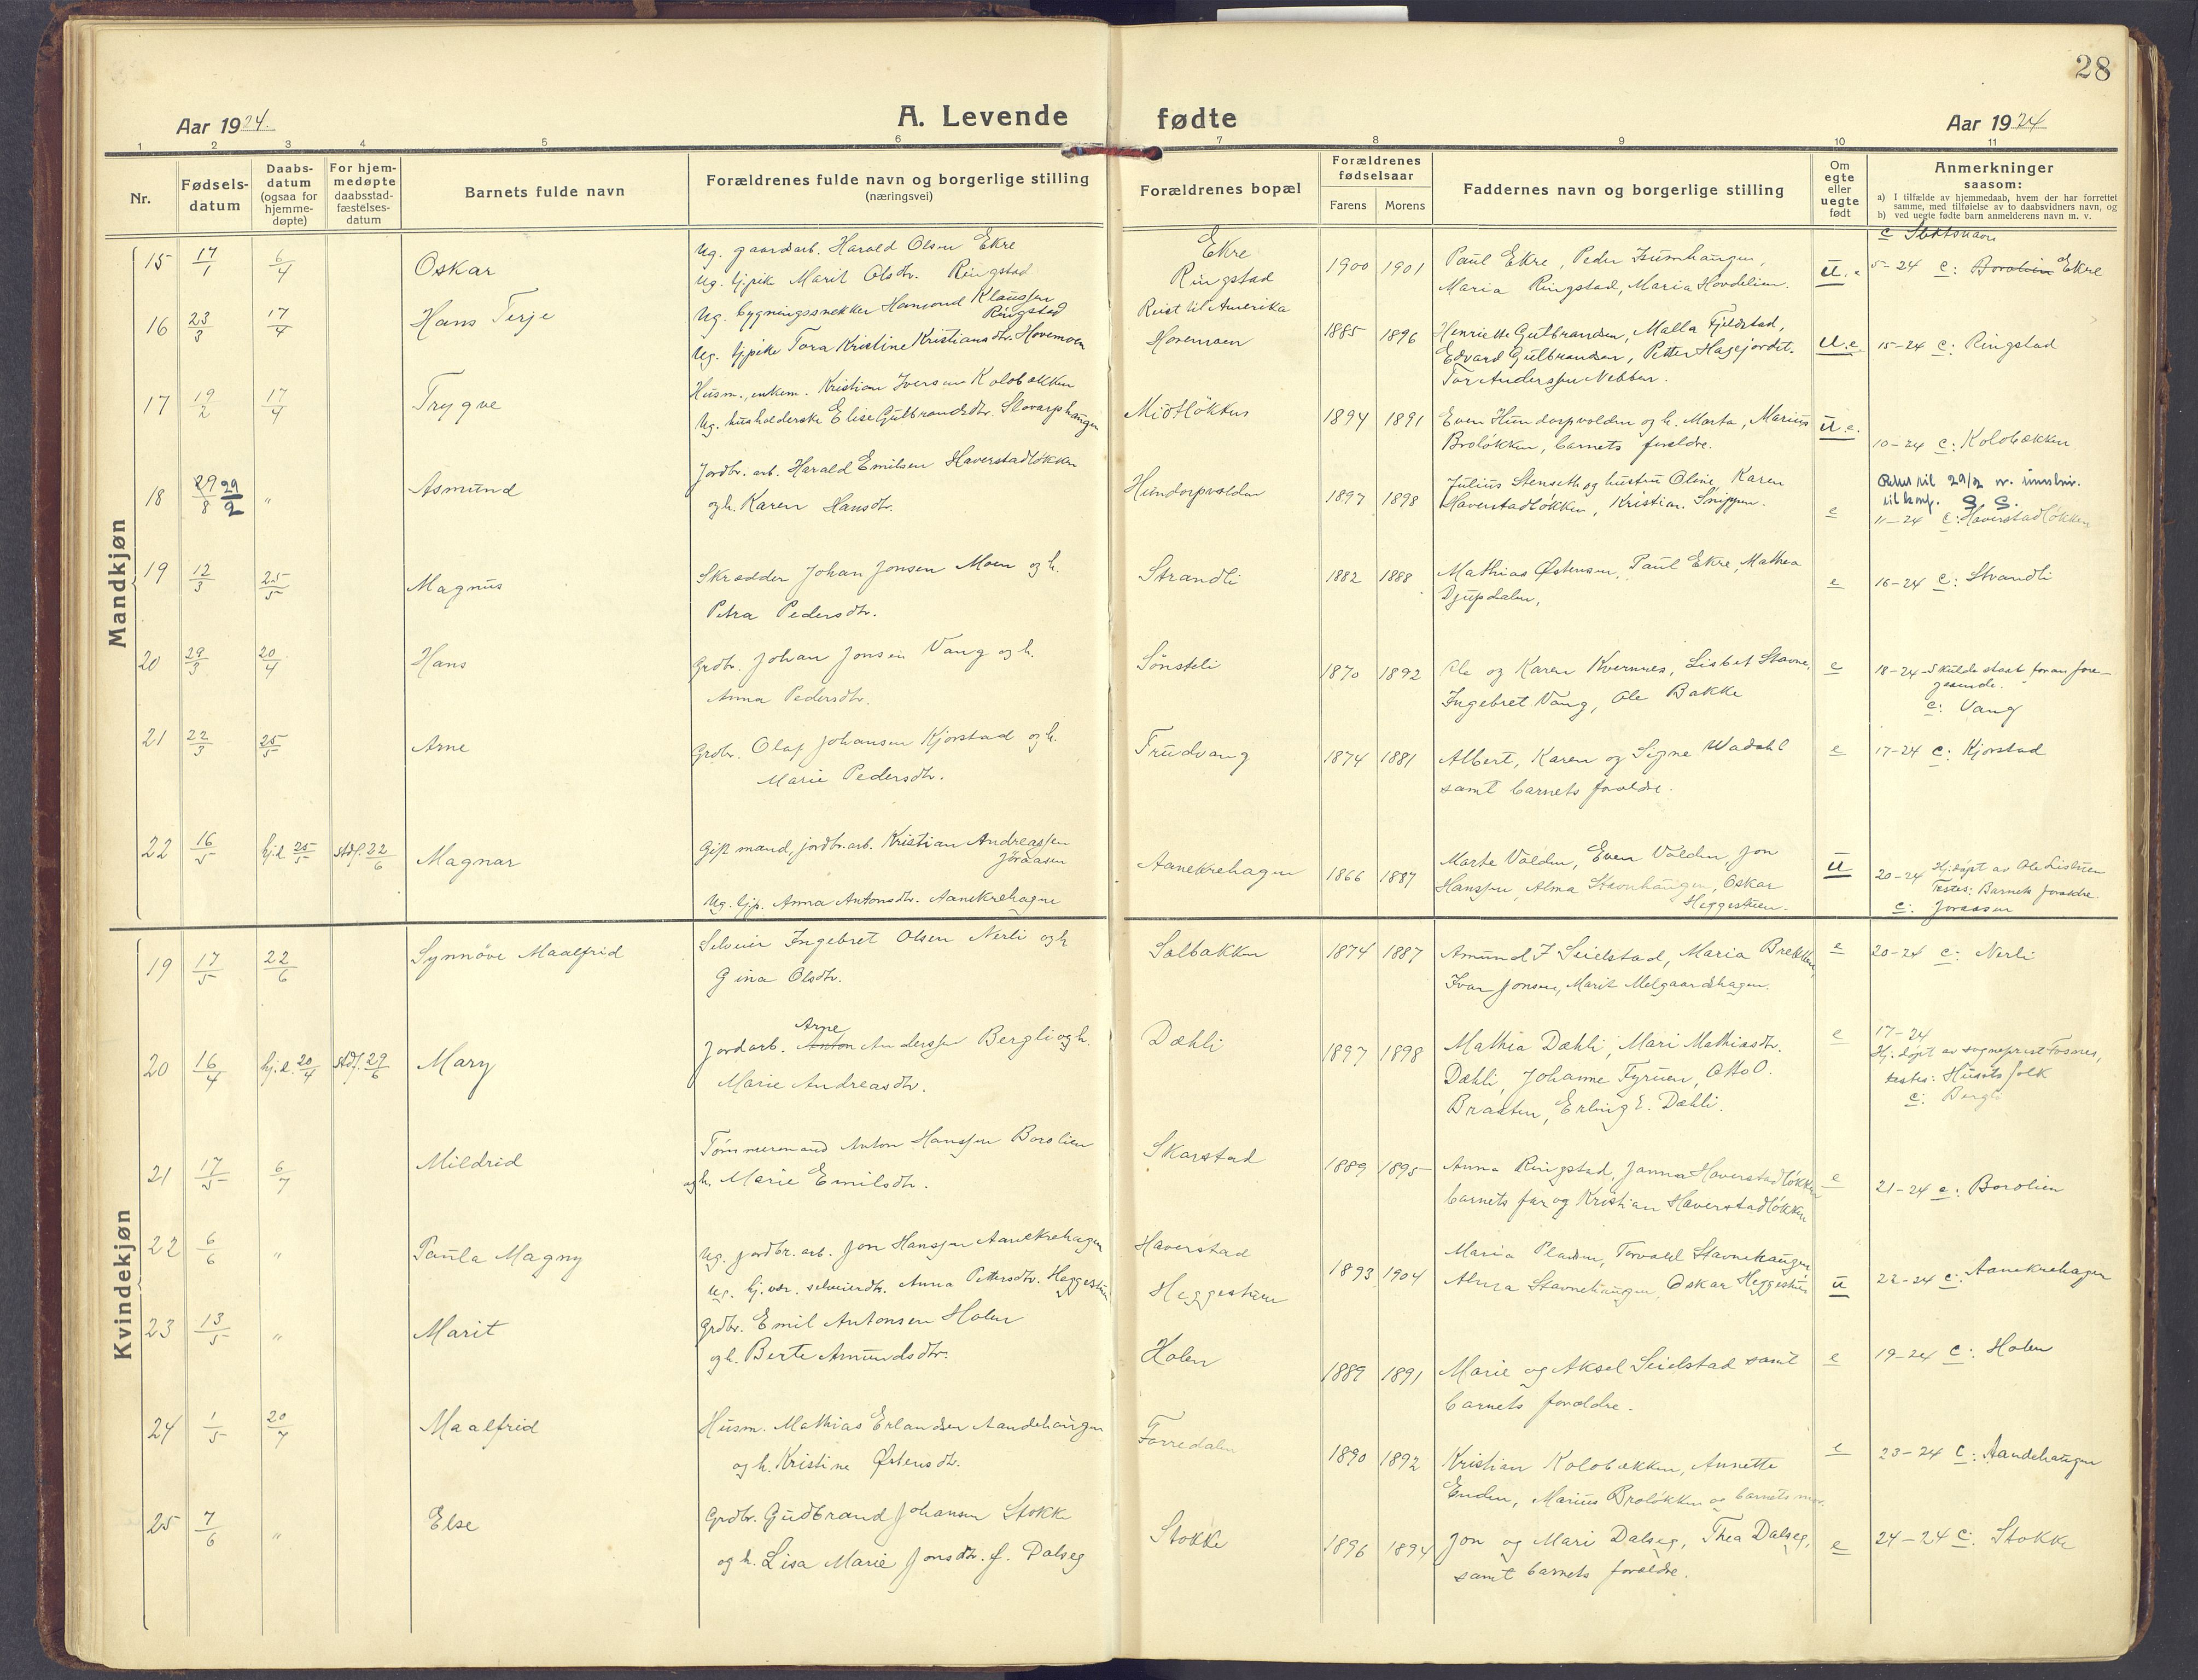 28
Aar 1924.
A. Levende fødte
Aar 1924
1 2 3 4 5 6 7 8 9 10 11
Nr.
Fødsels-
datum
Daabs-
datum
(ogsaa for
hjemme-
døpte)
For hjem-
medøpte
daabsstad-
fæstelses-
datum
Barnets fulde navn
Forældrenes fulde navn og borgerlige stilling
(næringsvei)
Forældrenes bopæl
Forældrenes
fødselsaar
Farens Morens
Faddernes navn og borgerlige stilling
Om
egte
eller
uegte
født
Anmerkninger
saasom:
a) I tilfælde av hjemmedaab, hvem der har forrettet
samme, med tilføielse av to daabsvidners navn, og
b) ved uegte fødte barn anmelderens navn m. v.
Mandkjøn
c Slektsnavn
15 17/1 6/4 Oskar
Ug. gaardsarb. Harald Olsen Ekre
Ug. tj.pike Marit Olsdtr. Ringstad
Ekre
Ringstad
1900 1901
Paul Ekre, Peder
Maria Ringstad, Maria Hovdelien.
u.e
5-24 c: Borolien Ekre
16 23/3 17/4 Hans Terje
Ug. bygningssnekker Hamond Klaussen
Ringstad
Ug. tjpike Tora Kristine Kristiansdtr. Hovemoen
Reist til Amerika
Hovemoen
1885 1896
Henriette Gulbrandsen, Malla Fjeldstad,
Edvard Gulbrandsen, Petter Hagejordet.
Tor Anderssen Nebben.
u.e.
15-24 c: Ringstad
17 19/2 17/4 Trygve
Husm., enkem. Kristian Iversen Kolobækken
Ug. husholderske Elise Gulbrandsdtr. Slovarpshaugen
Midtløkken
1894 1891
Even Hundorpvolden og h. Marta, Marius
Broløkken, barnets foreldre.
u.e.
10-24 c: Kolobækken
18 29/8 29/2 " Asmund
Jordbr. arb. Harald Emilsen Haverstadløkken
og h. Karen Hansdtr.
Hundorpvolden
1897 1898
Julius Stenseth og hustru Oline, Karen
Haverstadløkken, Kristian Snippen.
e
Rettet til 29/2 v. innskriv.
til konf. S. S.
11-24 c: Haverstadløkken
19 12/3 25/5 Magnus
Skrædder Johan Jonsen Moen og h.
Petra Pedersdtr.
Strandli
1882 1888
Mathias Østensen, Paul Ekre, Mathea
Djupdalen,
e
16-24 c: Strandli
20 29/3 20/4 Hans
Grdbr. Johan Jonsen Vang og h.
Anna Pedersdtr.
Sønsteli
1870 1892
Ole og Karen Kvernnes, Lisbet Stavne,
Ingebret Vang, Ole Bakke
e
18-24 Skulde staat foran fore-
gaaende.
c: Vang
21 22/3 25/5 Arne
Grdbr. Olaf Johansen Kjorstad og h.
Marie Pedersdtr.
Trudvang
1874 1881
Albert, Karen og Signe Wadahl
samt barnets forældre.
e
17-24 c: Kjorstad
22 16/5 hj.d. 25/5 stdf. 22/6 Magnar
Gift mand, jordbr. arb. Kristian Andreassen
Jøraasen
Ug. tjp. Anna Antonsdtr. Aanekrehagen
Aanekrehagen
1866 1887
Marte Volden, Even Volden, Jon
Hanssen, Alma Stavnhaugen, Oskar
Heggestuen.
u
20-24 Hj.døpt av Ole Listuen
Testes: Barnets forældre.
c: Joraasen
Kvindekjøn
19 17/5 22/6 Synnöve Maalfrid
Selveier Ingebret Olsen Nerli og h
Gina Olsdtr.
Solbakken
1874 1887
Amund I Seielstad, Maria Brekken,
Ivar Jonsen, Marit Melgaardshagen.
e
20-24 c: Nerli
20 16/4 hj.d. 20/4 stdf. 29/6 Mary
Arne
Jordarb. Anton Anderssen Bergli og h.
Marie Andreasdtr.
Dæhli
1897 1898
Mathea Dæhli, Mari Mathiasdtr.
Dæhli, Johanne Fyruen, Otto O.
Braaten, Erling E. Dæhli.
e
17-24
Hj. døpt av sogneprest Fosnes,
testes: Husets folk
c: Bergli
21 17/5 6/7 Mildrid
Tømmermand Anton Hanssen Borolien
og h. Marie Emilsdtr.
Skarstad
1889 1895
Anna Ringstad, Janna Haverstadløkken
barnets far og Kristian Haverstadløkken
e
21-24 c: Borolien
22 6/6 " Paula Magny
Ug. jordbr. arb. Jon Hanssen Aanekrehagen
Ug. hj.vær. selveierdtr. Anna Pettersdtr. Heggestuen
Haverstad
Heggestuen
1893 1904
Maria Pladsen, Torvald Stavnehaugen
Alma Stavnehaugen, Oskar Heggestuen
u
22-24 c: Aanekrehagen
23 13/5 " Marit
Grdbr. Emil Antonsen Holen
og h. Berte Amundsdtr.
Holen
1889 1891
Marie og Aksel Seielstad samt
barnets forældre.
e
19-24 c: Holen
24 1/5 20/7 Maalfrid
Husm. Mathias Erlandsen Aandehaugen
og h. Kristine Østensdtr.
Forredalen
1890 1892
Kristian Kolobækken, Annette
Enden, Marius Broløkken og barnets mor.
e
23-24 c: Aandehaugen
25 7/6 " Else
Grdbr. Gudbrand Johansen Stokke
og h. Lisa Marie Jonsdtr. f. Dalseg
Stokke
1896 1894
Jon og Mari Dalseg, Thea Dalseg,
samt barnets forældre.
e
24-24 c: Stokke